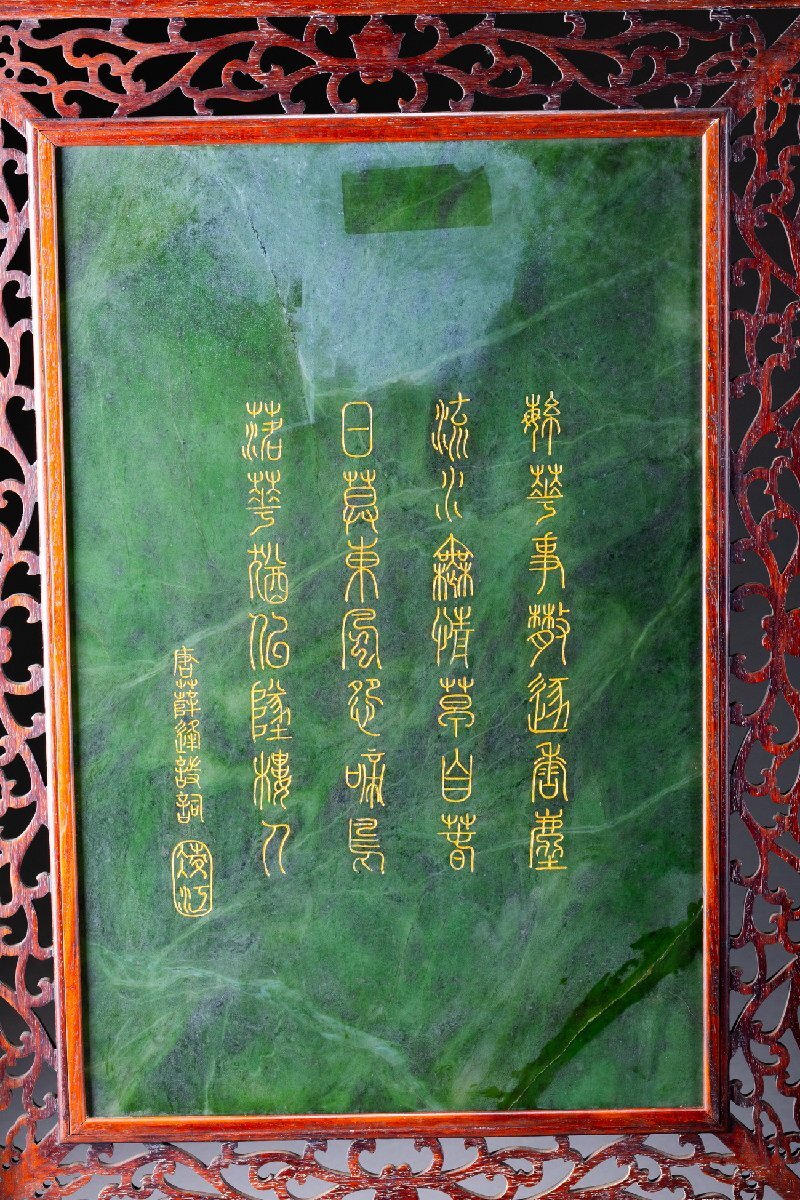 繁華事散逐香塵
流水無情草自春
日暮東風怨啼鳥
落華猶似墜樓人
唐薛逢詩詞